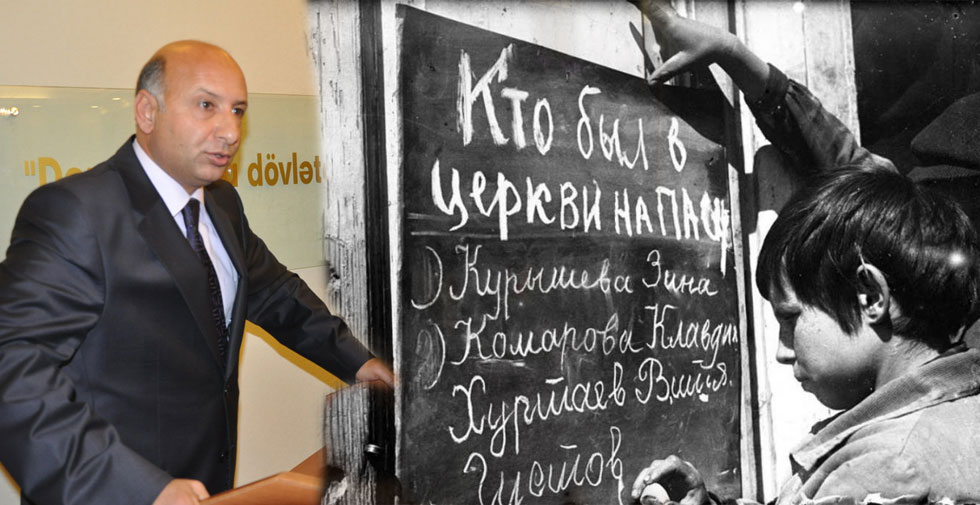 dövlət
Кто был в
церкви на пасху
1) Курышева Зина
2) Комарова Клавдия
Хуртаев Витя.